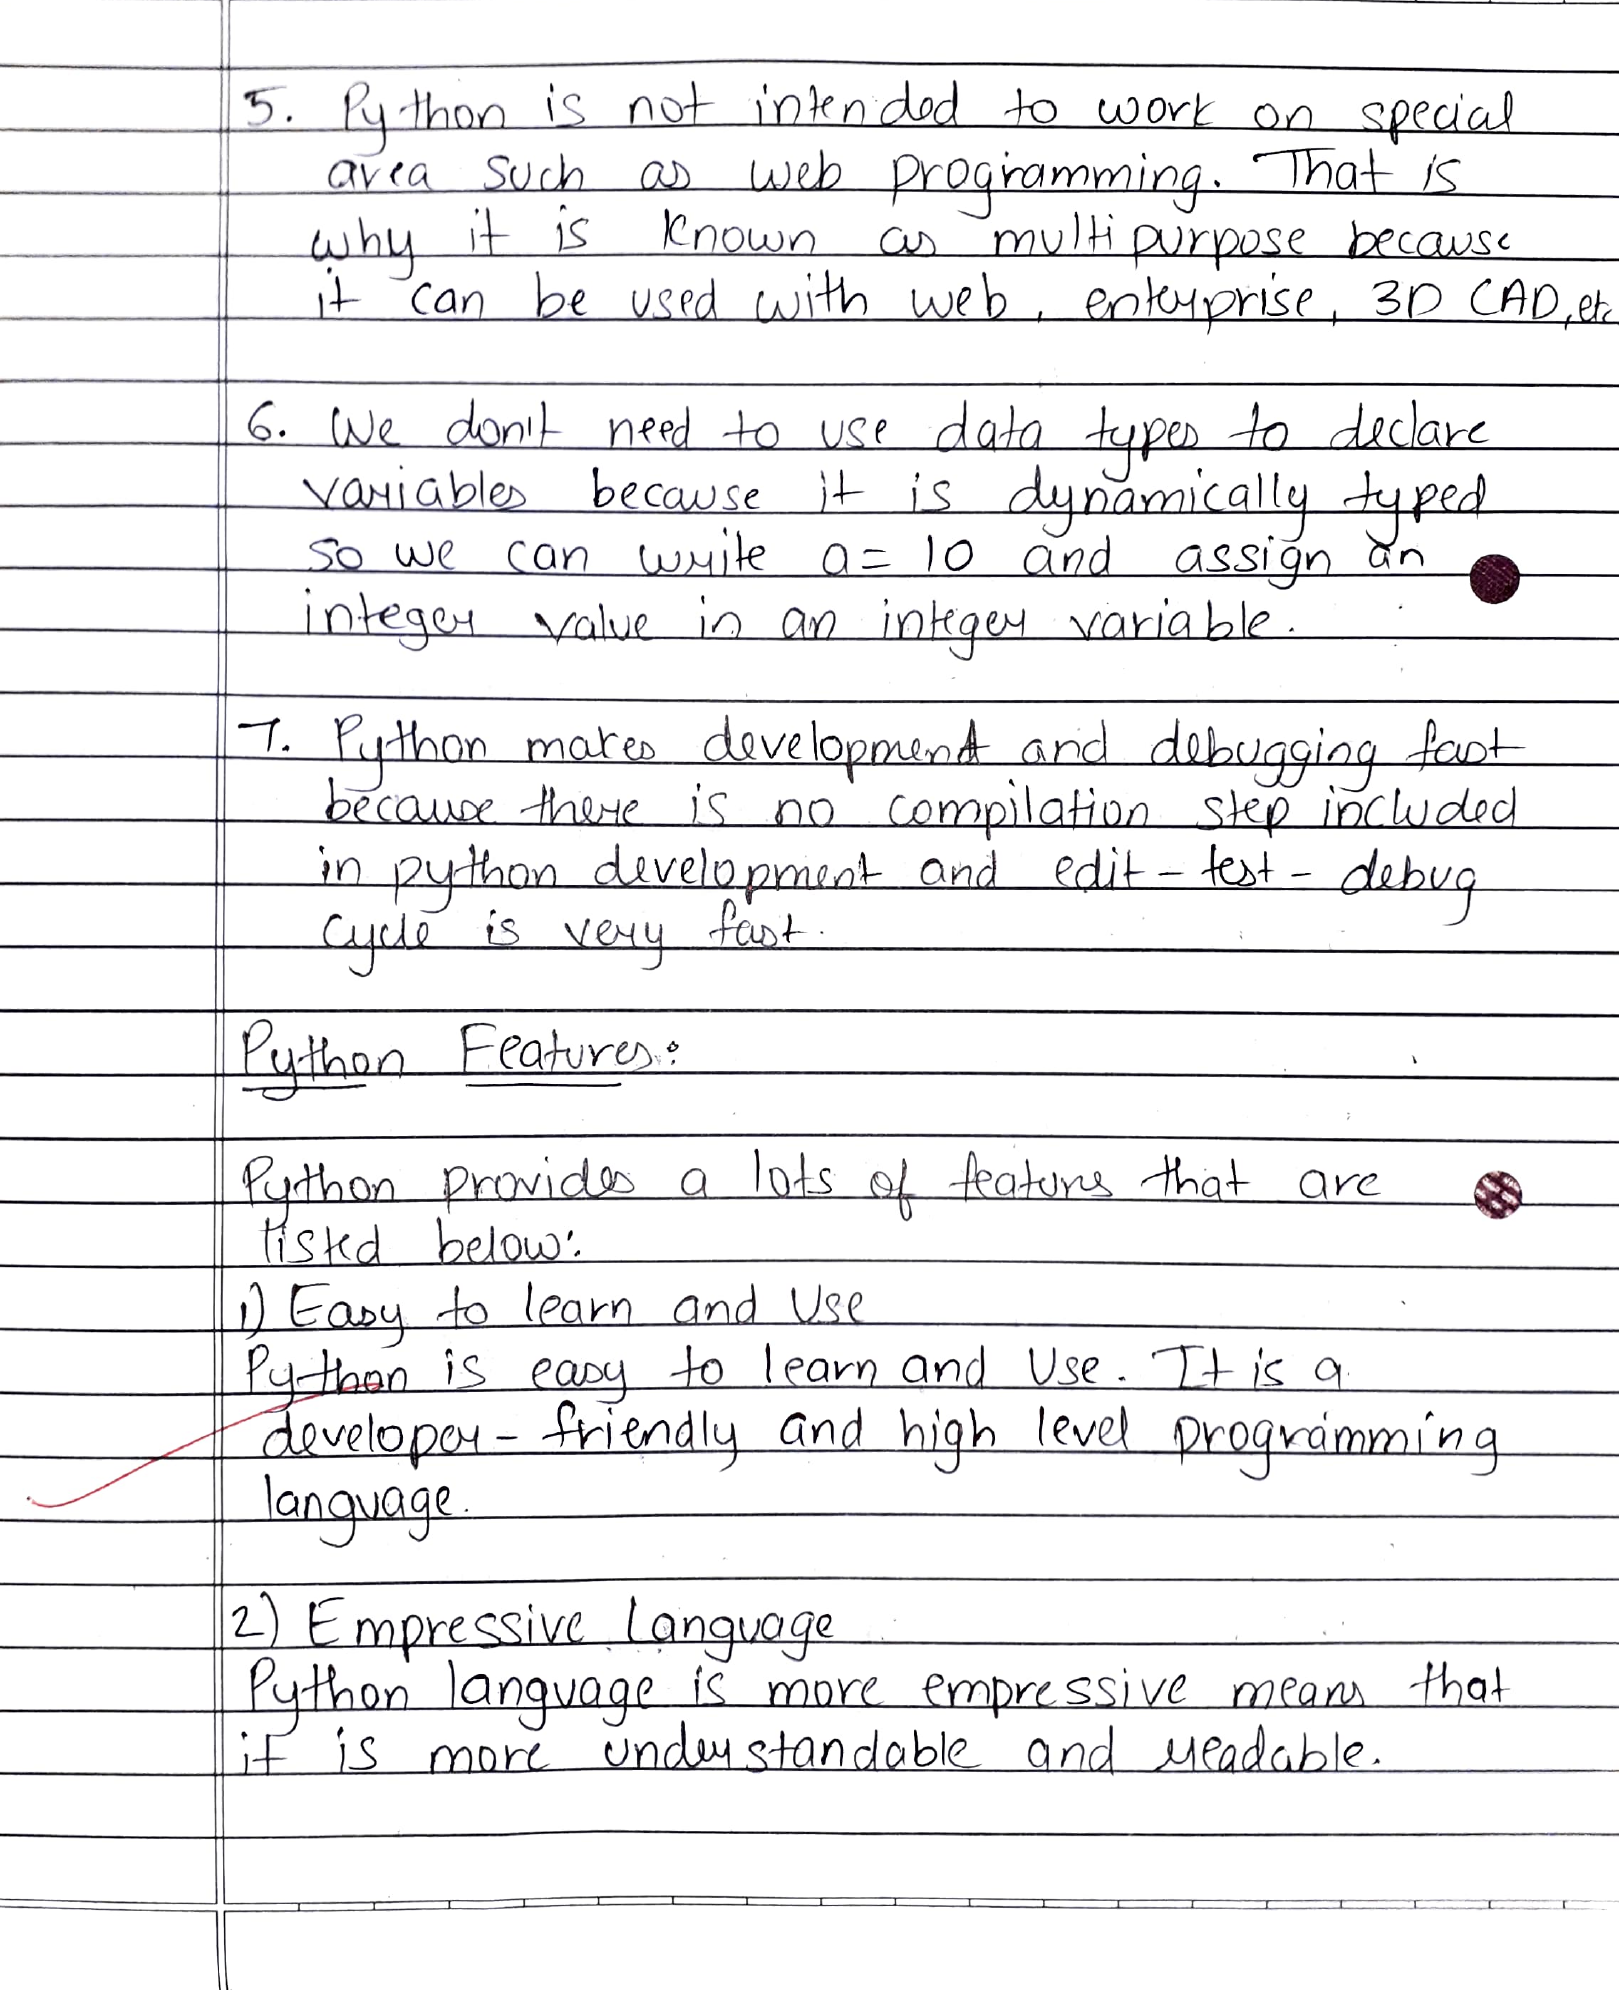 5. Python is not intended to work on special
area such as web programming. That is
why it is known as multipurpose because
it can be used with web, enterprise, 3D CAD, etc
6. We don't need to use data types to declare
variables because it is dynamically typed
so we can write a = 10 and assign an
integer value in an integer variable.
7. Python makes development and debugging fast
because there is no compilation step included
in python development and edit - test - debug
cycle is very fast.
Python Features:
Python provides a lots of features that are
listed below:
1) Easy to learn and Use
Python is easy to learn and Use. It is a
developer - friendly and high level programming
language.
2) Empressive Language
Python language is more empressive means that
it is more understandable and readable.